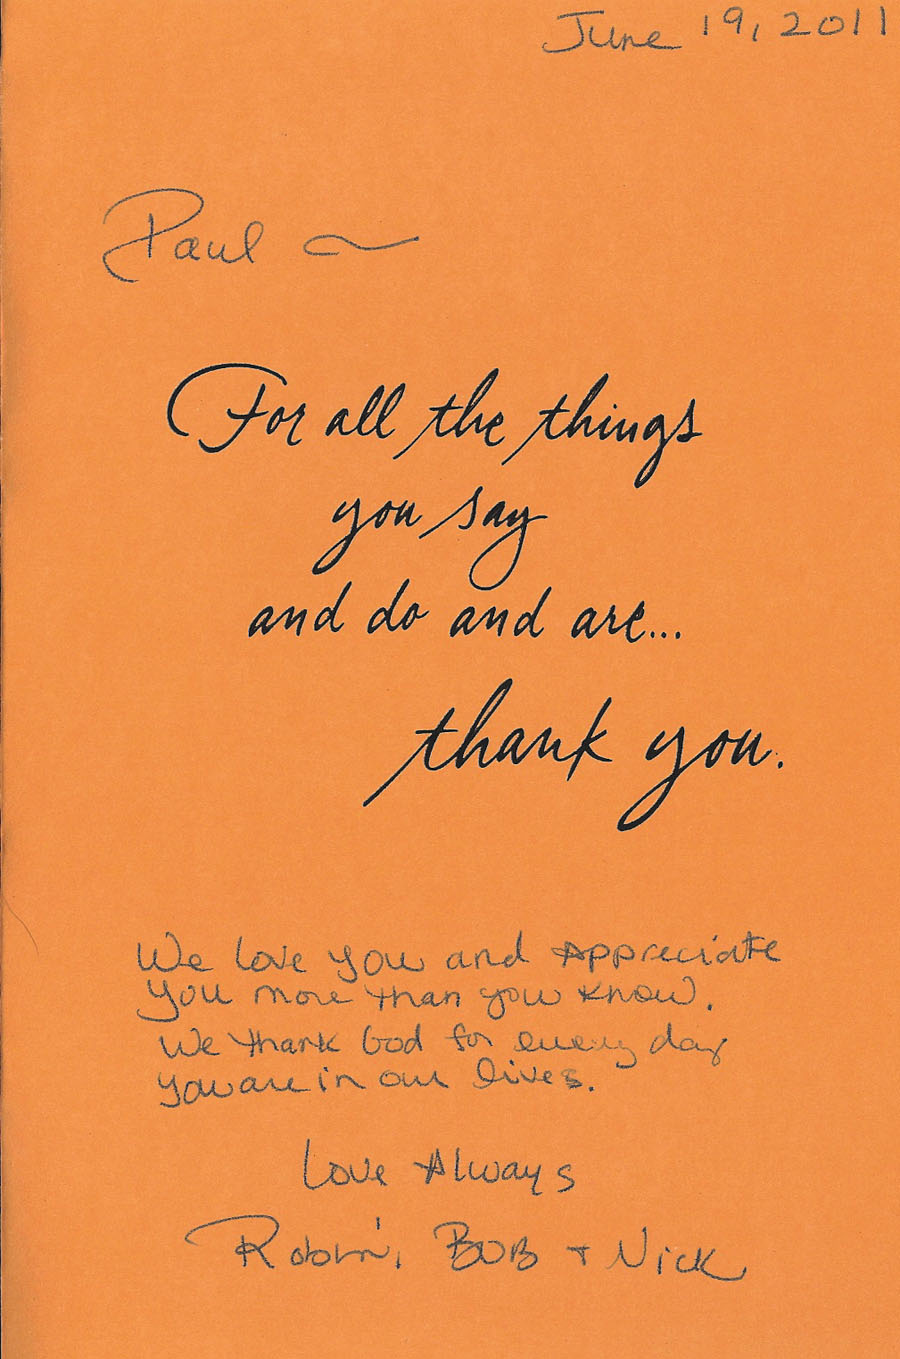 June 19, 2011
Paul ~
For all the things
you say
and do and are...
thank you.
We love you and Appreciate
you more than you know.
We thank God for every day
you are in our lives.
Love Always
Robin, BOB + Nick